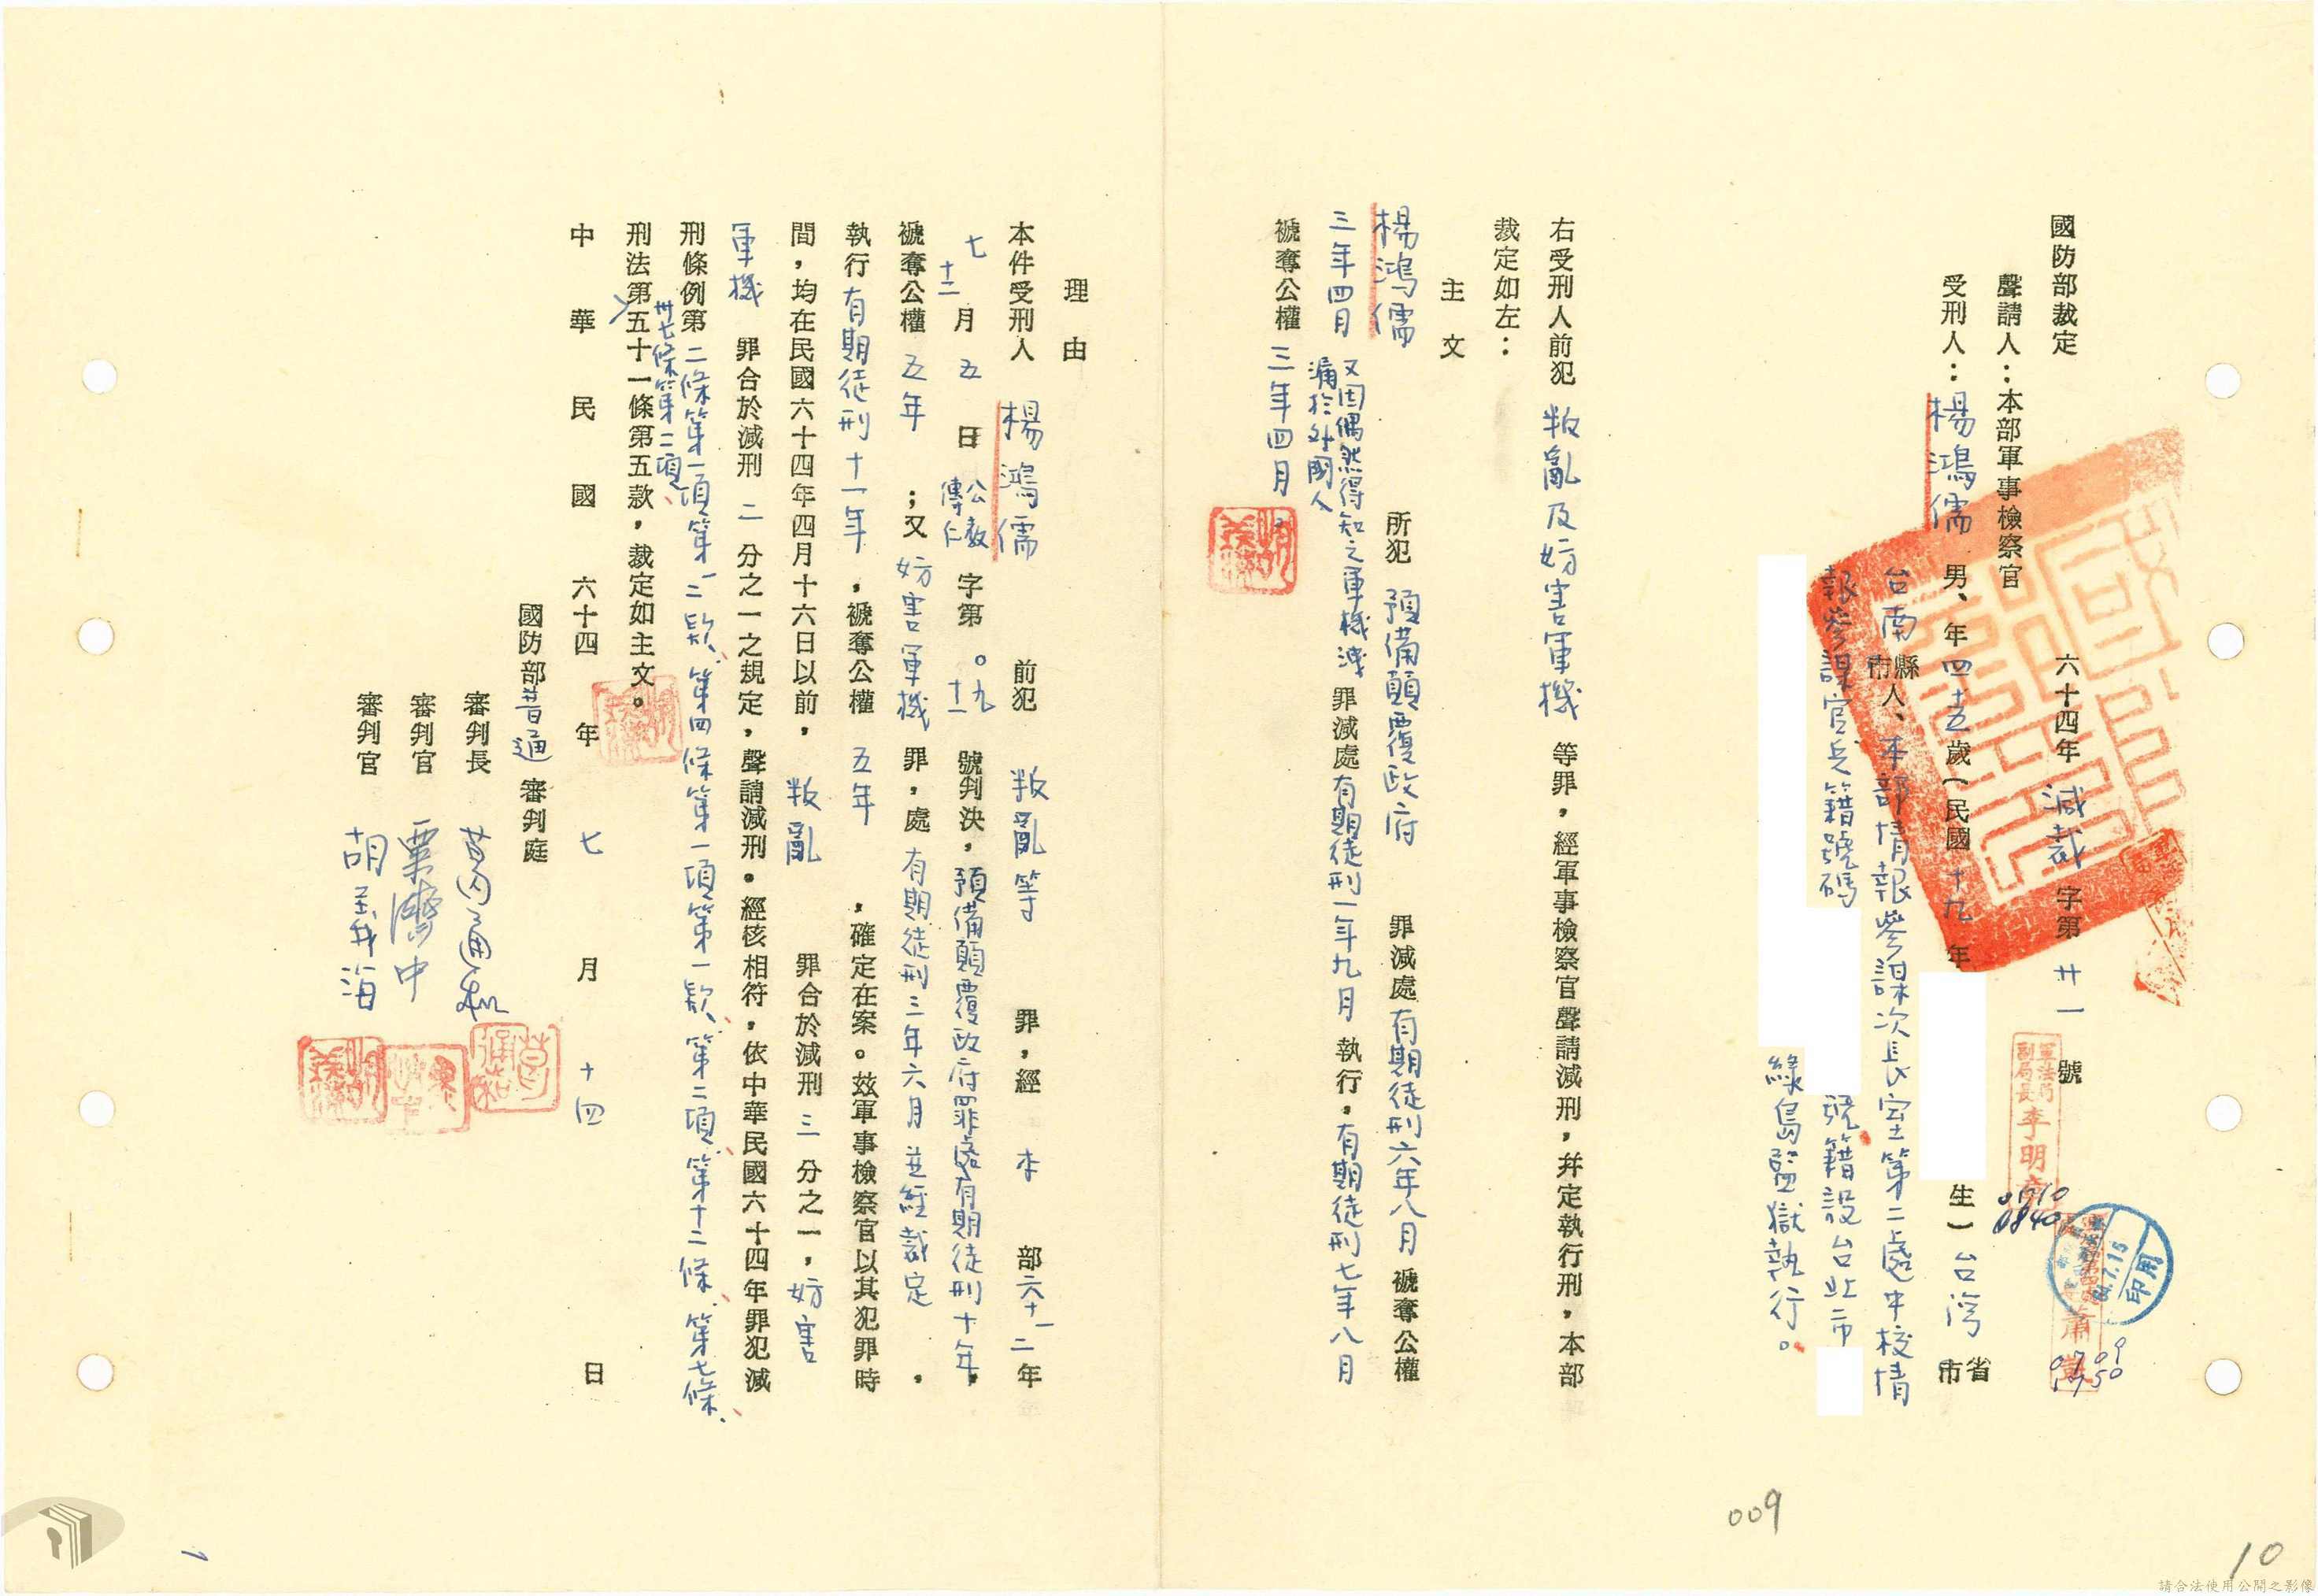 國防部裁定
六十四年減裁字第廿一號
聲請人：本部軍事檢察官
受刑人：楊鴻儒 男、年四十五歲（民國十九年 生）台灣省市
台南縣市人、本部情報參謀次長室第二處中校情
報參謀官兵籍號碼 號籍設台北市
綠島監獄執行。
右受刑人前犯叛亂及妨害軍機等罪，經軍事檢察官聲請減刑，并定執行刑，本部
裁定如左：
主文
楊鴻儒所犯預備顛覆政府罪減處有期徒刑六年八月褫奪公權
三年四月又因偶然得知之軍機洩漏於外國人罪減處有期徒刑一年九月執行，有期徒刑七年八月
褫奪公權三年四月
理由
本件受刑人楊鴻儒前犯叛亂等罪，經本部六十一二年
七十二月五日公教傳仁字第〇十九一號判決，預備顛覆政府罪處有期徒刑十年，
褫奪公權五年；又妨害軍機罪，處有期徒刑三年六月並經裁定，
執行有期徒刑十一年，褫奪公權五年，確定在案。茲軍事檢察官以其犯罪時
間，均在民國六十四年四月十六日以前，叛亂罪合於減刑三分之一，妨害
軍機罪合於減刑二分之一之規定，聲請減刑。經核相符，依中華民國六十四年罪犯減
刑條例第二條第一項第一二款、第四條第一項第一款、第二項、第十二條、第七條、
卅七條第二項、
刑法第五十一條第五款，裁定如主文。
中華民國六十四年七月十四日
國防部普通審判庭
審判長 葛通和
審判官 粟濟中
審判官 胡義海
軍法局副局長李明彥
0710
0840
64.7.15
印用
蕭
0709
1750
009
10
請合法使用公開之影像